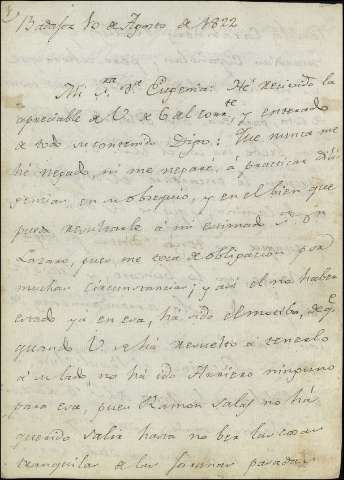 Badajoz 10 de Agosto de 1822
Mi S.ra D.a Eugenia: Hé recivido la
apreciable de V. de 6 al corr.te y enterado
de todo su contenido Digo: Que nunca me
hé negado, ni me negaré á practicar dili
gencias, en su obsequio, y en el bien que
pueda resultarle á mi estimado S.or Dn
Lazaro, pues me coxe de obligacion por
muchas circunstancias; y asi el no haber
estado yá en esa, há sido el motibo, de q.e
quando V. se há resuelto á tenerlo
á su lado, no há ido Harriero ninguno
para esa, pues Ramon Salas no há
querido salir hasta no ber las cosas
tranquilas de las jaranas pasadas